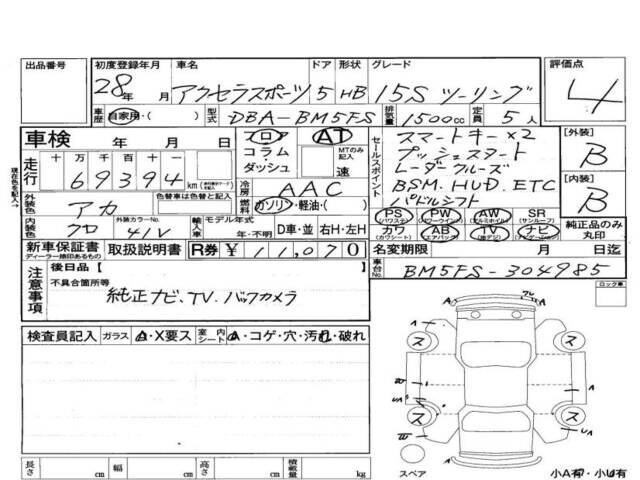 出品番号
初度登録年月 車名 ドア 形状 グレード 評価点
28年 月 アクセラスポーツ 5 HB 15S ツーリング 4
車歴 自家用・( ) 型式 DBA-BM5FS 排気量 1500cc 定員 5人
車検 年 月 日 フロア AT スマートキー×2 [外装]
コラム・ダッシュ MTのみ記入 速 セールスポイント プッシュスタート B
走行 十 万 千 百 十 一 レーダークルーズ
69394 km 冷房 AAC BSM.HUD.ETC [内装]
外装色 アカ 色替車は色替と記入 燃料 ガソリン・軽油・( ) パドルシフト B
内装色 クロ 外装カラーNo. 41V 輸入車 モデル年式 年・不明 D車並 右H・左H
PS PW AW SR 純正品のみ丸印
(パワステ) (パワーウインド) (アルミホイル) (サンルーフ)
カワ AB TV ナビ
(カワシート) (エアバック) (地デジ) (ナビゲーション)
新車保証書 取扱説明書 R券 ¥11,070 名変期限 月 日迄
ディーラー捺印あるもの
車台No. BM5FS-304985
注意事項 後日品【 】 ロック車
不具合箇所等
純正ナビ.TV.バックカメラ
検査員記入 ガラス A・X要ス 室内シート A・コゲ・穴・汚れ・破れ
A
ス ス
A
ス ス
A
長さ cm 幅 cm 高さ cm 積載量 kg
スペア 小A有・小U有